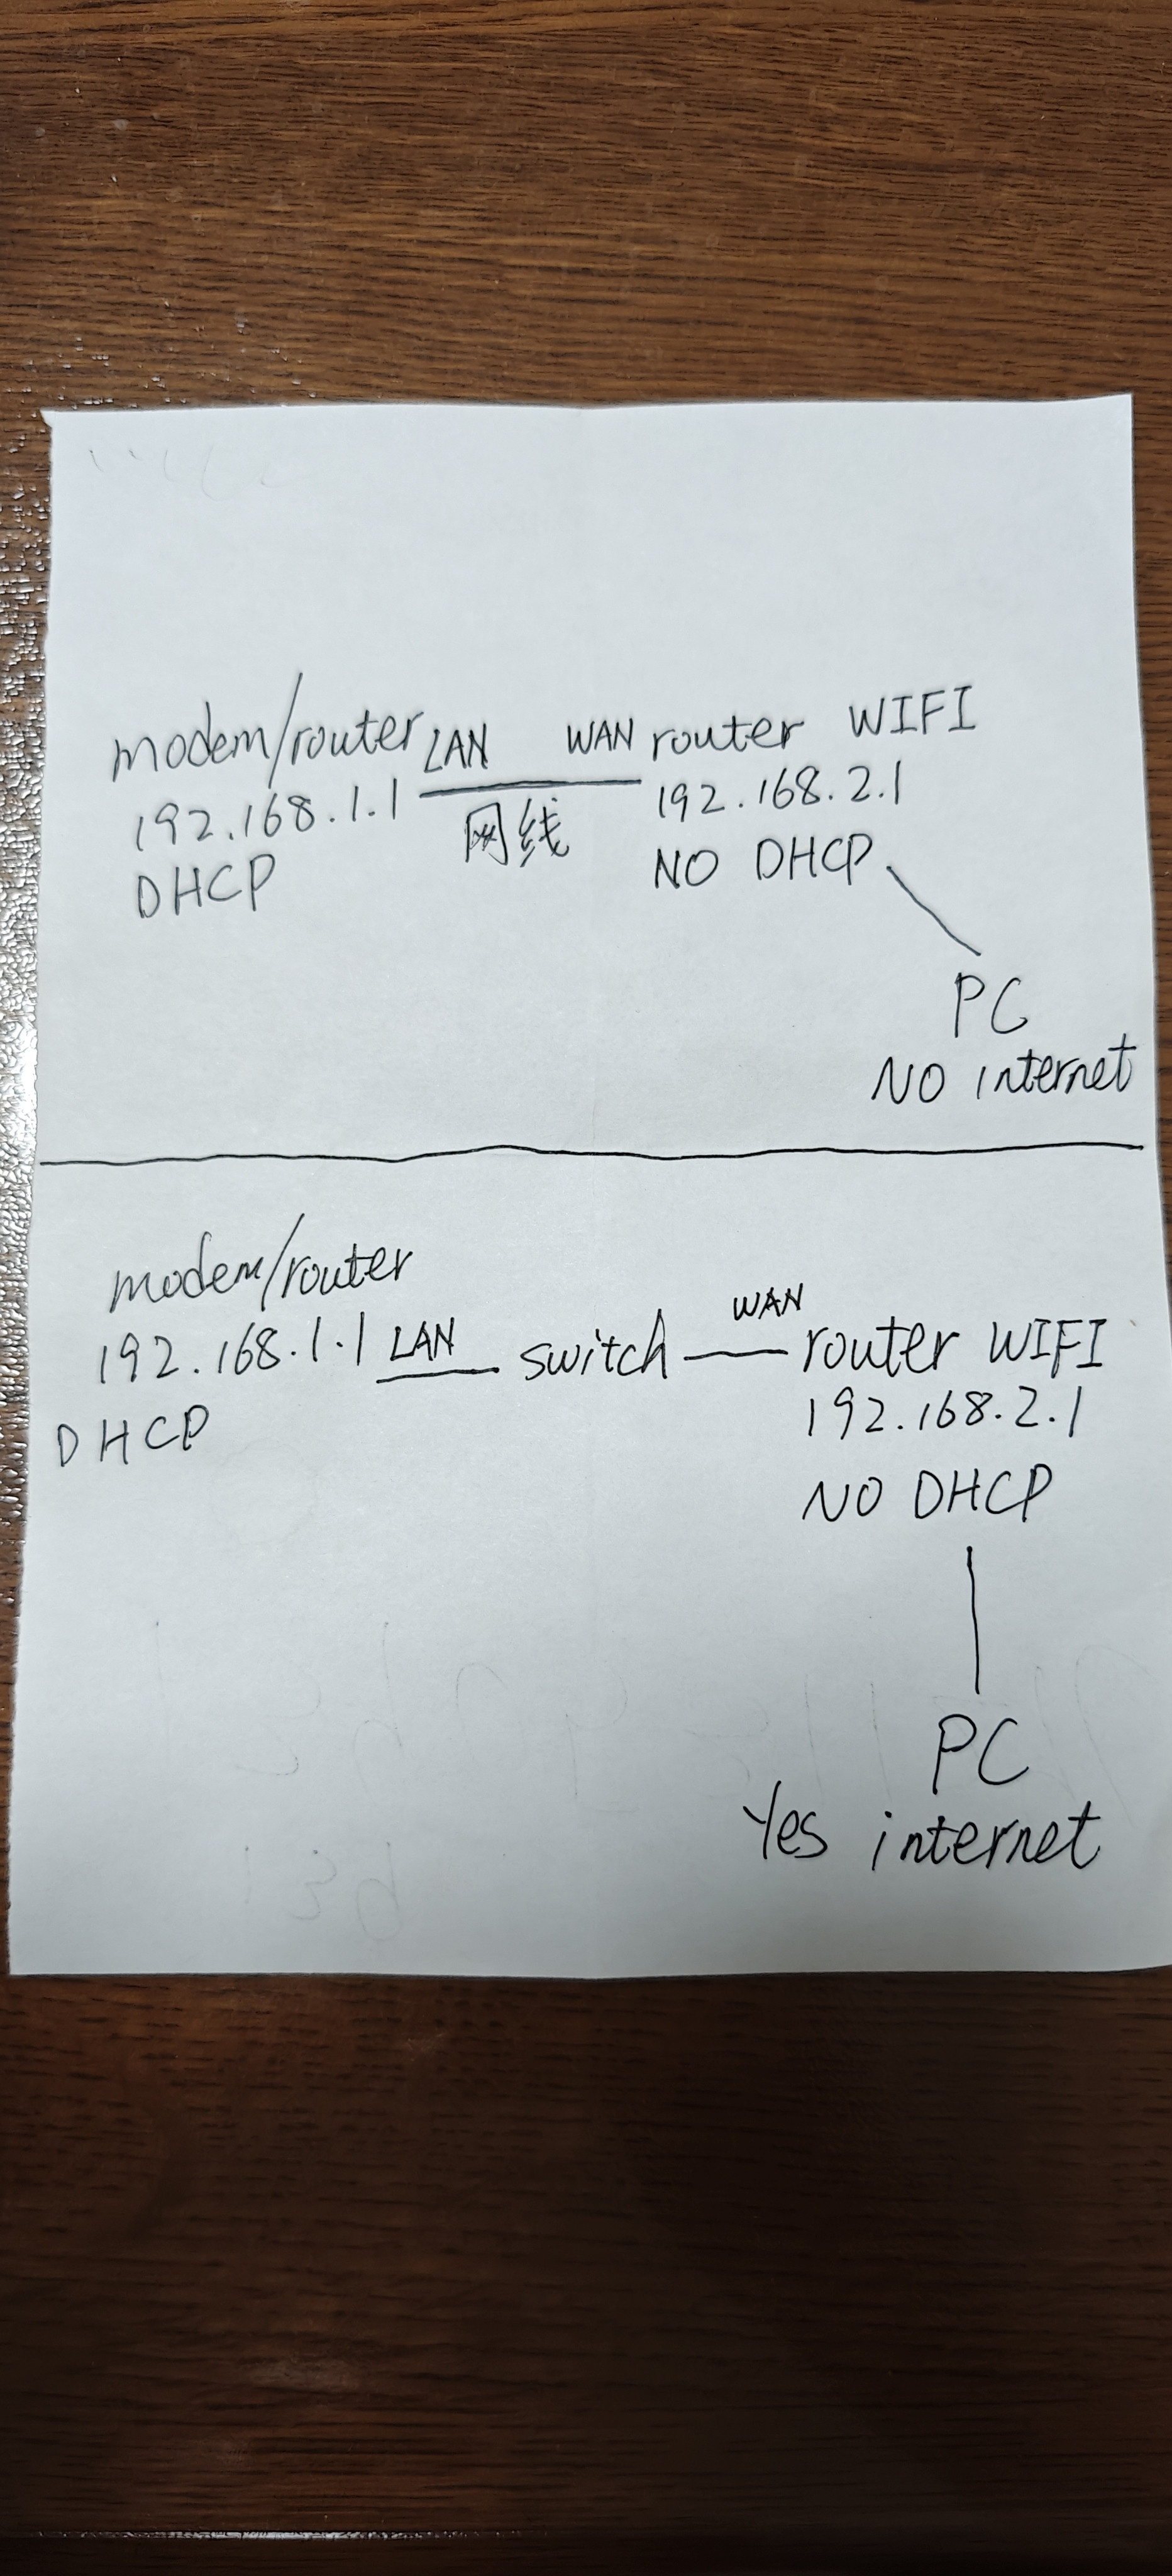 modem/router LAN WAN router WIFI
192.168.1.1 网线 192.168.2.1
DHCP NO DHCP
PC
NO internet
modem/router
192.168.1.1 LAN switch WAN router WIFI
192.168.2.1
DHCP
NO DHCP
PC
Yes internet